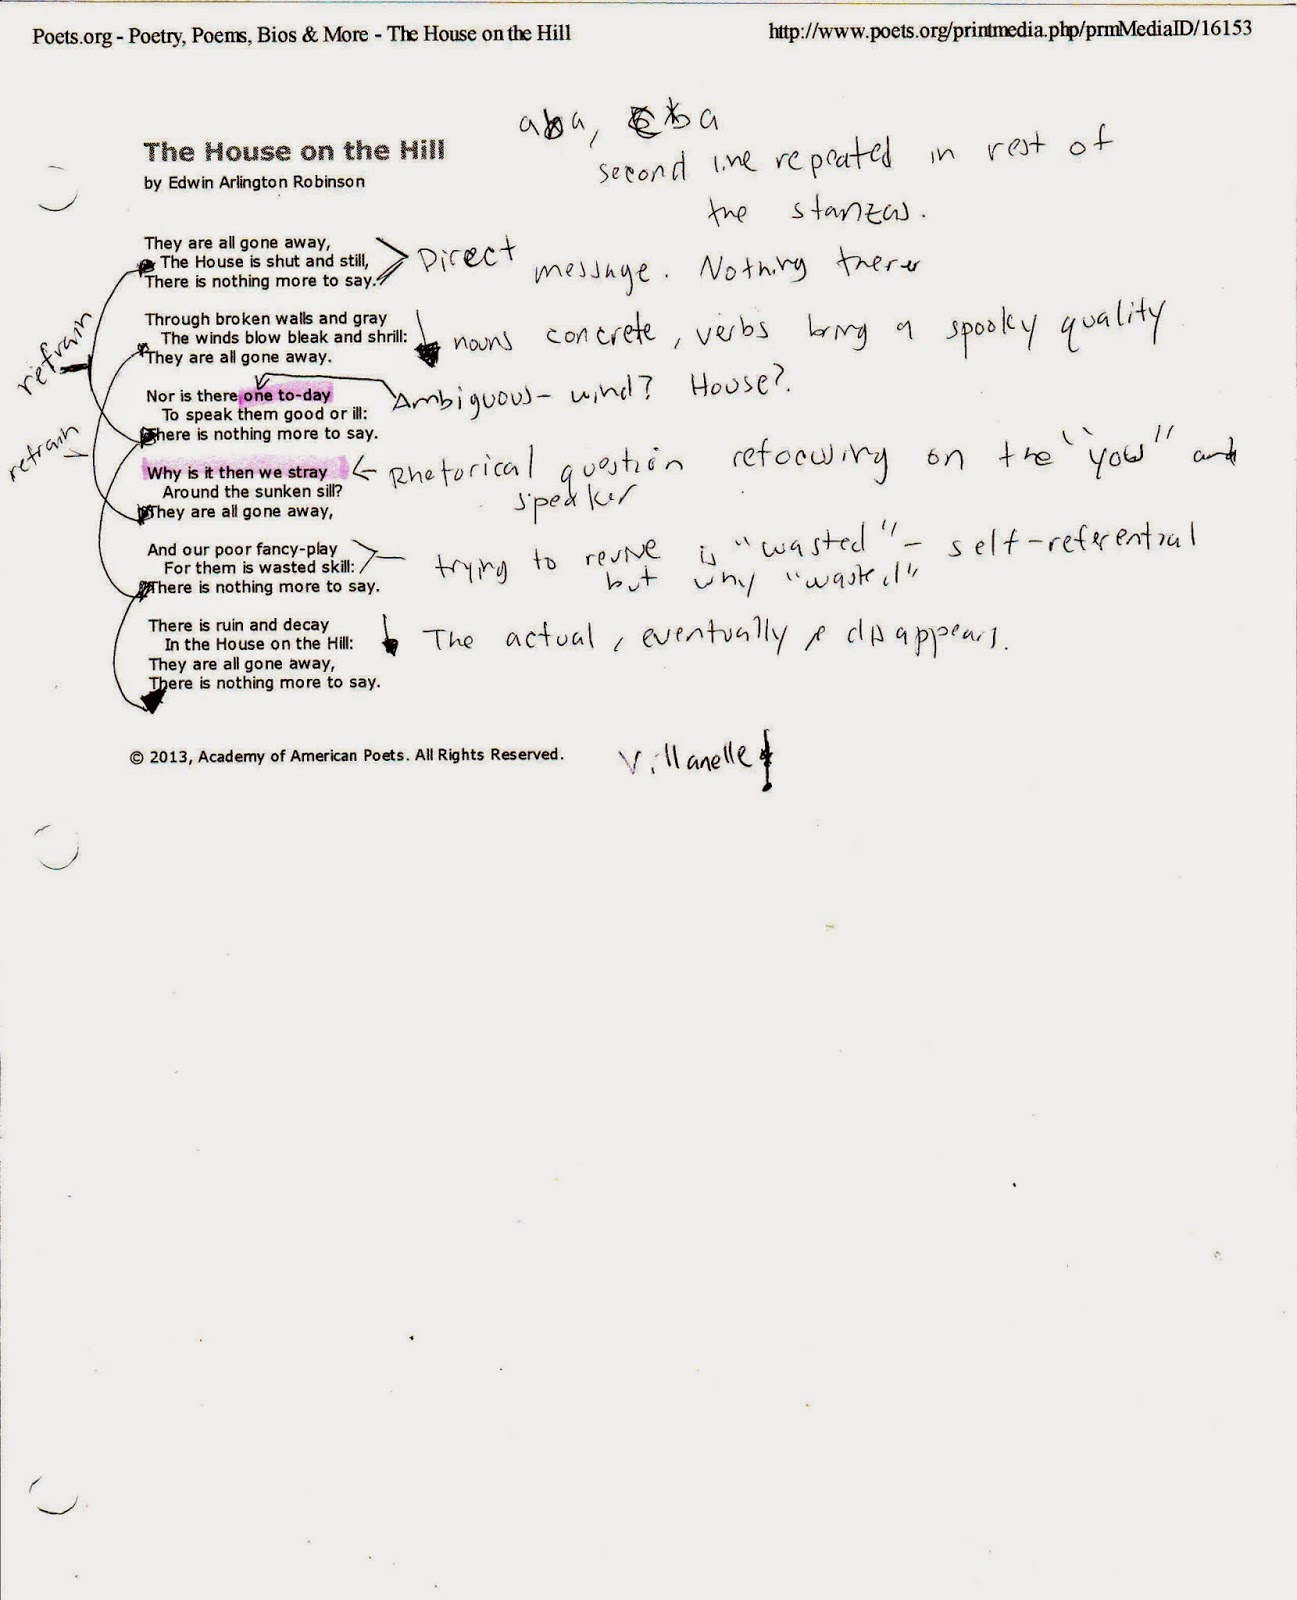 Poets.org - Poetry, Poems, Bios & More - The House on the Hill
http://www.poets.org/printmedia.php/prmMediaID/16153
aba, ba
second line repeated in rest of
the stanzas.
The House on the Hill
by Edwin Arlington Robinson
They are all gone away,
The House is shut and still,
There is nothing more to say.
Direct message. Nothing there
Through broken walls and gray
The winds blow bleak and shrill:
They are all gone away.
nouns concrete, verbs bring a spooky quality
refrain
Nor is there one to-day
To speak them good or ill:
There is nothing more to say.
Ambiguous- wind? House?.
refrain
Why is it then we stray
Around the sunken sill?
They are all gone away,
Rhetorical question refocusing on the "you" and
speaker
And our poor fancy-play
For them is wasted skill:
There is nothing more to say.
trying to revive is "wasted" - self-referential
but why "wasted"
There is ruin and decay
In the House on the Hill:
They are all gone away,
There is nothing more to say.
The actual, eventually disappears.
© 2013, Academy of American Poets. All Rights Reserved.
Villanelle!